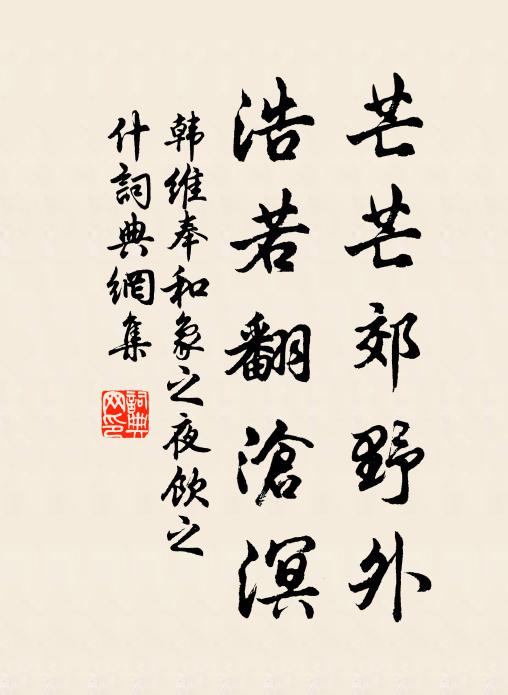 芒芒郊野外
浩若翻滄溟
韩維奉和象之夜飲之
什詞典網集
詞典
网印